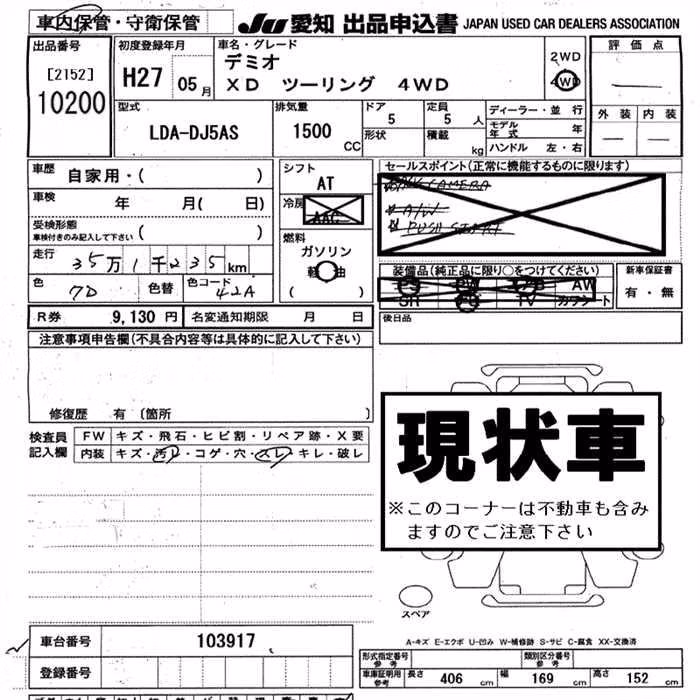 車内保管・守衛保管
JU 愛知 出品申込書 JAPAN USED CAR DEALERS ASSOCIATION
出品番号
[2152]
10200
初度登録年月
H27 05月
車名・グレード
デミオ
XD ツーリング 4WD
2WD
4WD
評価点
外装 内装
型式
LDA-DJ5AS
排気量
1500 CC
ドア 5
形状
定員 5 人
積載 kg
ディーラー・並 行
モデル年式 年
ハンドル 左・右
車歴 自家用・( )
車検 年 月( 日)
受検形態
車検付きのみ記入して下さい ( )
走行 35万1千235km
色 7D 色替 色コード 42A
シフト
AT
冷房
AAC
燃料
ガソリン
軽 油
( )
セールスポイント(正常に機能するものに限ります)
BACK CAMERA
A/W
PUSH START
装備品(純正品に限り○をつけてください)
PS PW エアB AW
SR TV カワシート
新車保証書
有・無
R券 9,130 円 名変通知期限 月 日
後日品
注意事項申告欄(不具合内容等は具体的に記入して下さい)
修復歴 有 〔箇所 〕
検査員記入欄
FW キズ・飛石・ヒビ割・リペア跡・X要
内装 キズ・汚レ・コゲ・穴・スレ・キレ・破レ
現状車
※このコーナーは不動車も含み
ますのでご注意下さい
スペア
A-キズ E-エクボ U-凹み W-補修跡 S-サビ C-腐食 XX-交換済
車台番号 103917
登録番号
形式指定番号 参考
類別区分番号 参考
車庫証明用参考 長さ 406 cm 幅 169 cm 高さ 152 cm